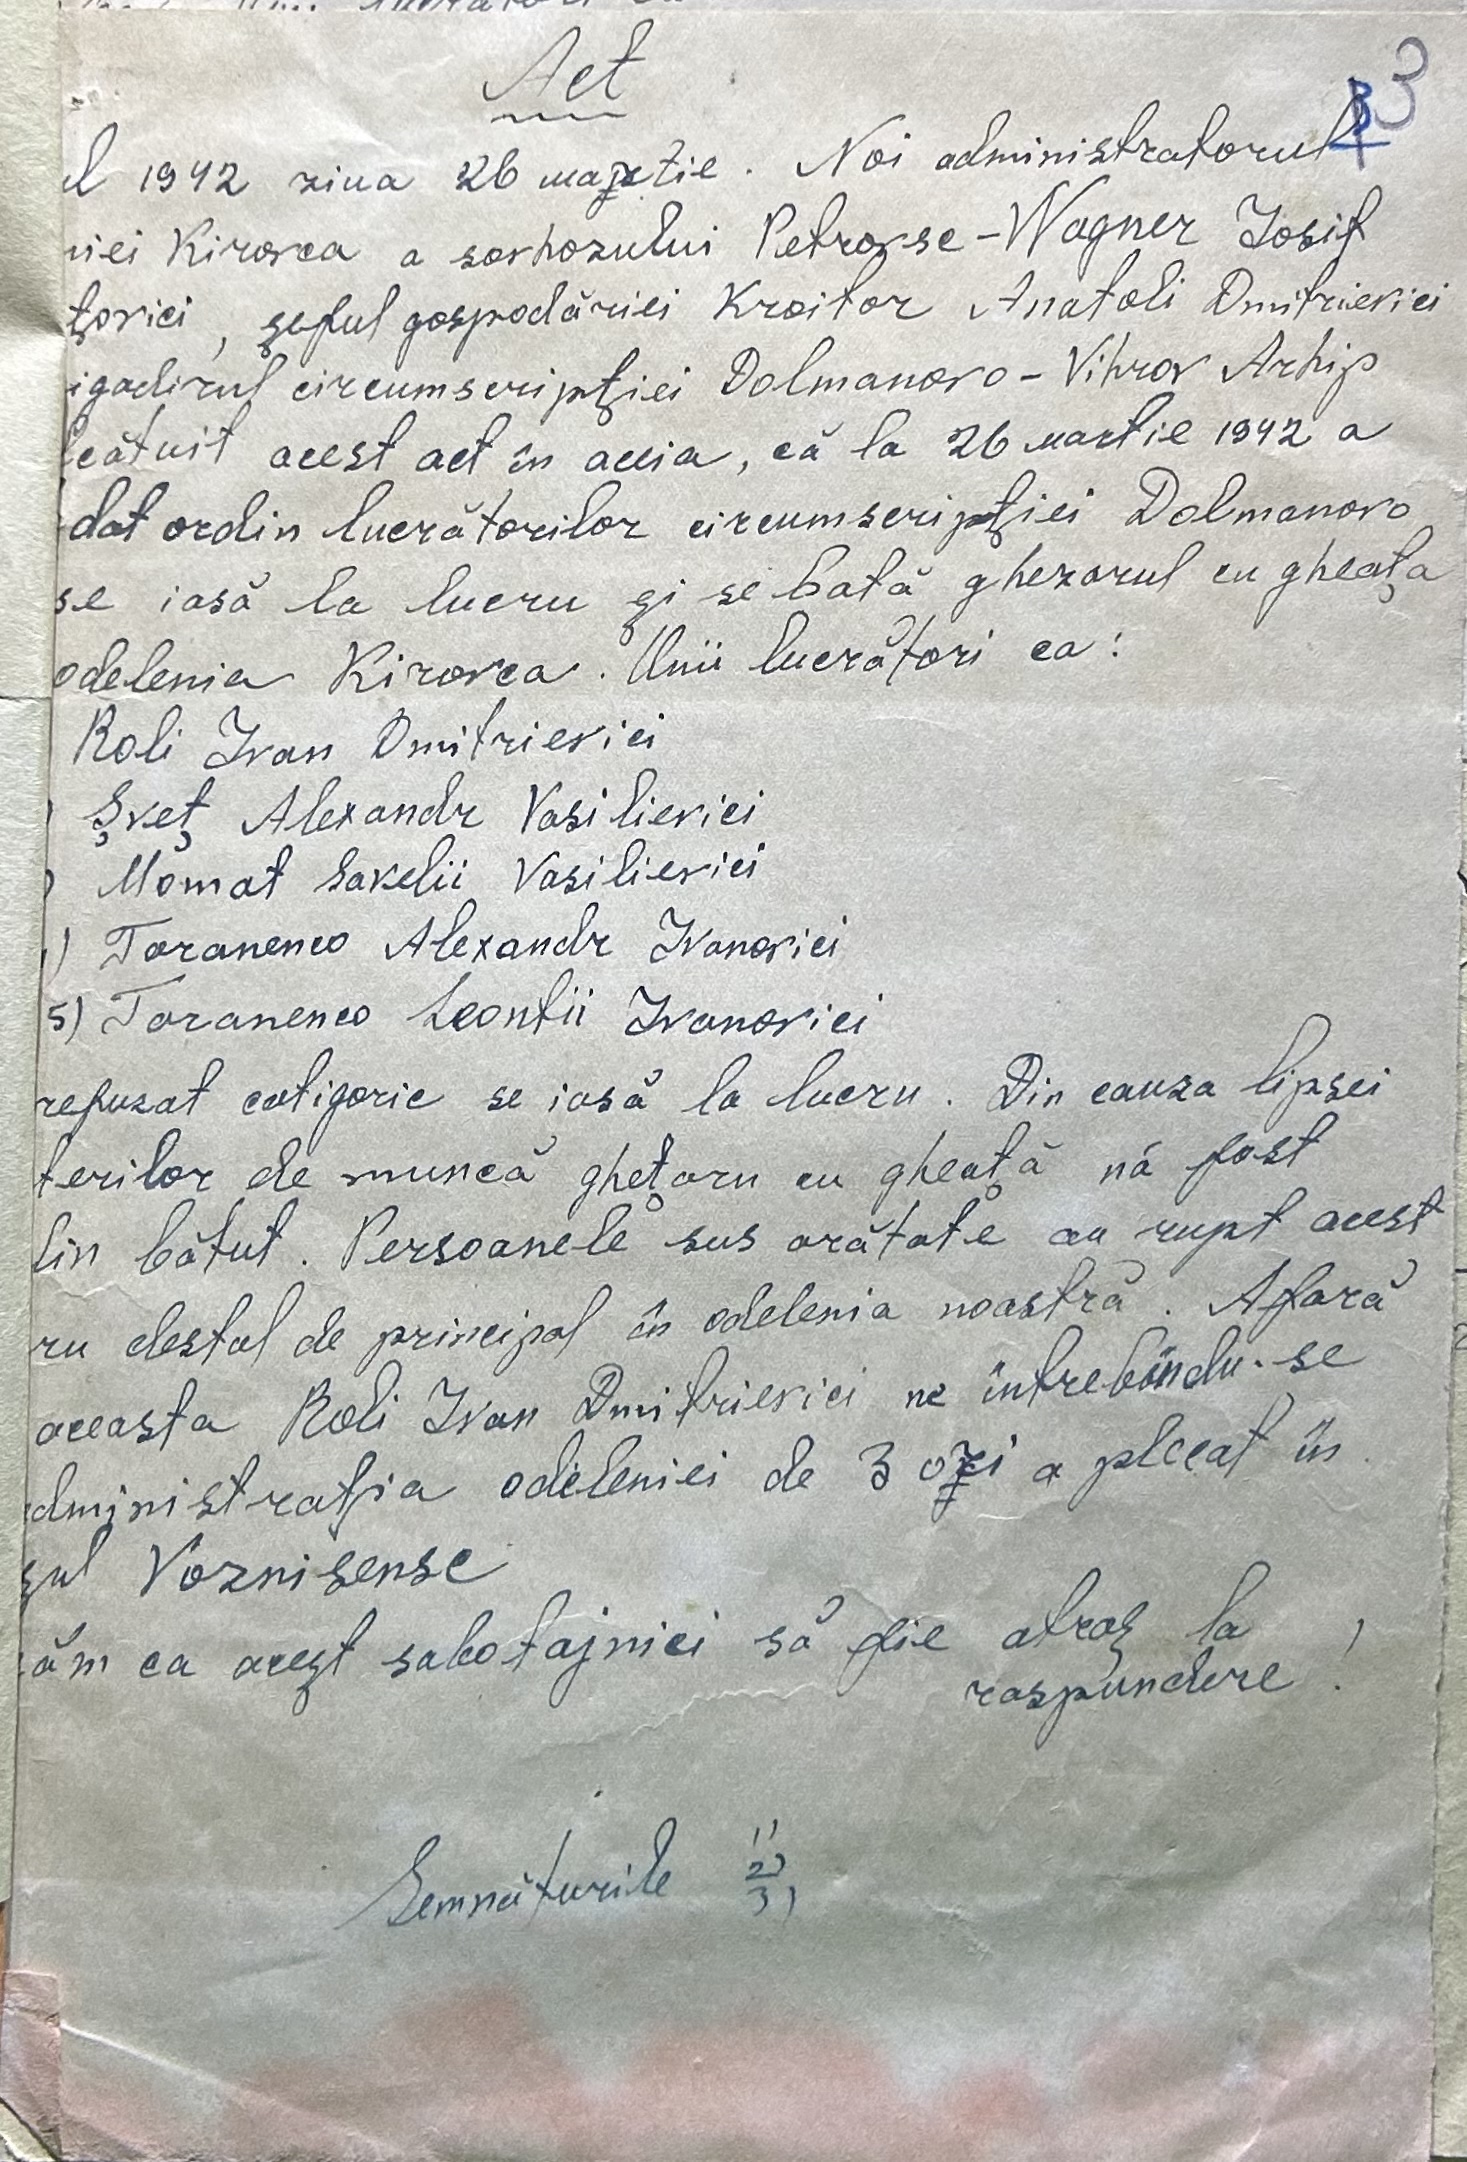 Act
3
l 1942 ziua 26 martie. Noi administratorul
niei Kirovca a sovhozului Petrovsc-Wagner Iosif
ţovici, şeful gospodăriei Kroitor Anatoli Dmitrievici
igadirul circumscripţiei Dolmanovo-Vihrov Arhip
lcătuit acest act în aceia, că la 26 martie 1942 a
dat ordin lucrătorilor circumscripţiei Dolmanovo
se iasă la lucru şi se bată ghezarul cu gheaţa
odelenia Kirovca. Unii lucrători ca:
Roli Ivan Dmitrievici
) Şveţ Alexandr Vasilievici
) Momat Savelii Vasilievici
) Taranenco Alexandr Ivanovici
5) Taranenco Leontii Ivanovici
refuzat catigoric se iasă la lucru. Din cauza lipsei
terilor de muncă gheţaru cu gheaţă nă fost
lin bătut. Persoanele sus arătate au rupt acest
ru destul de principal în odelenia noastră. Afară
aceasta Roli Ivan Dmitrievici ne întrebîndu-se
dministraţia odeleniei de 3 ori a plecat în
şul Voznisensc
ăm ca aceşt sabotajnici să fie atraş la
raspundere!
Semnăturile 1)
2)
3)